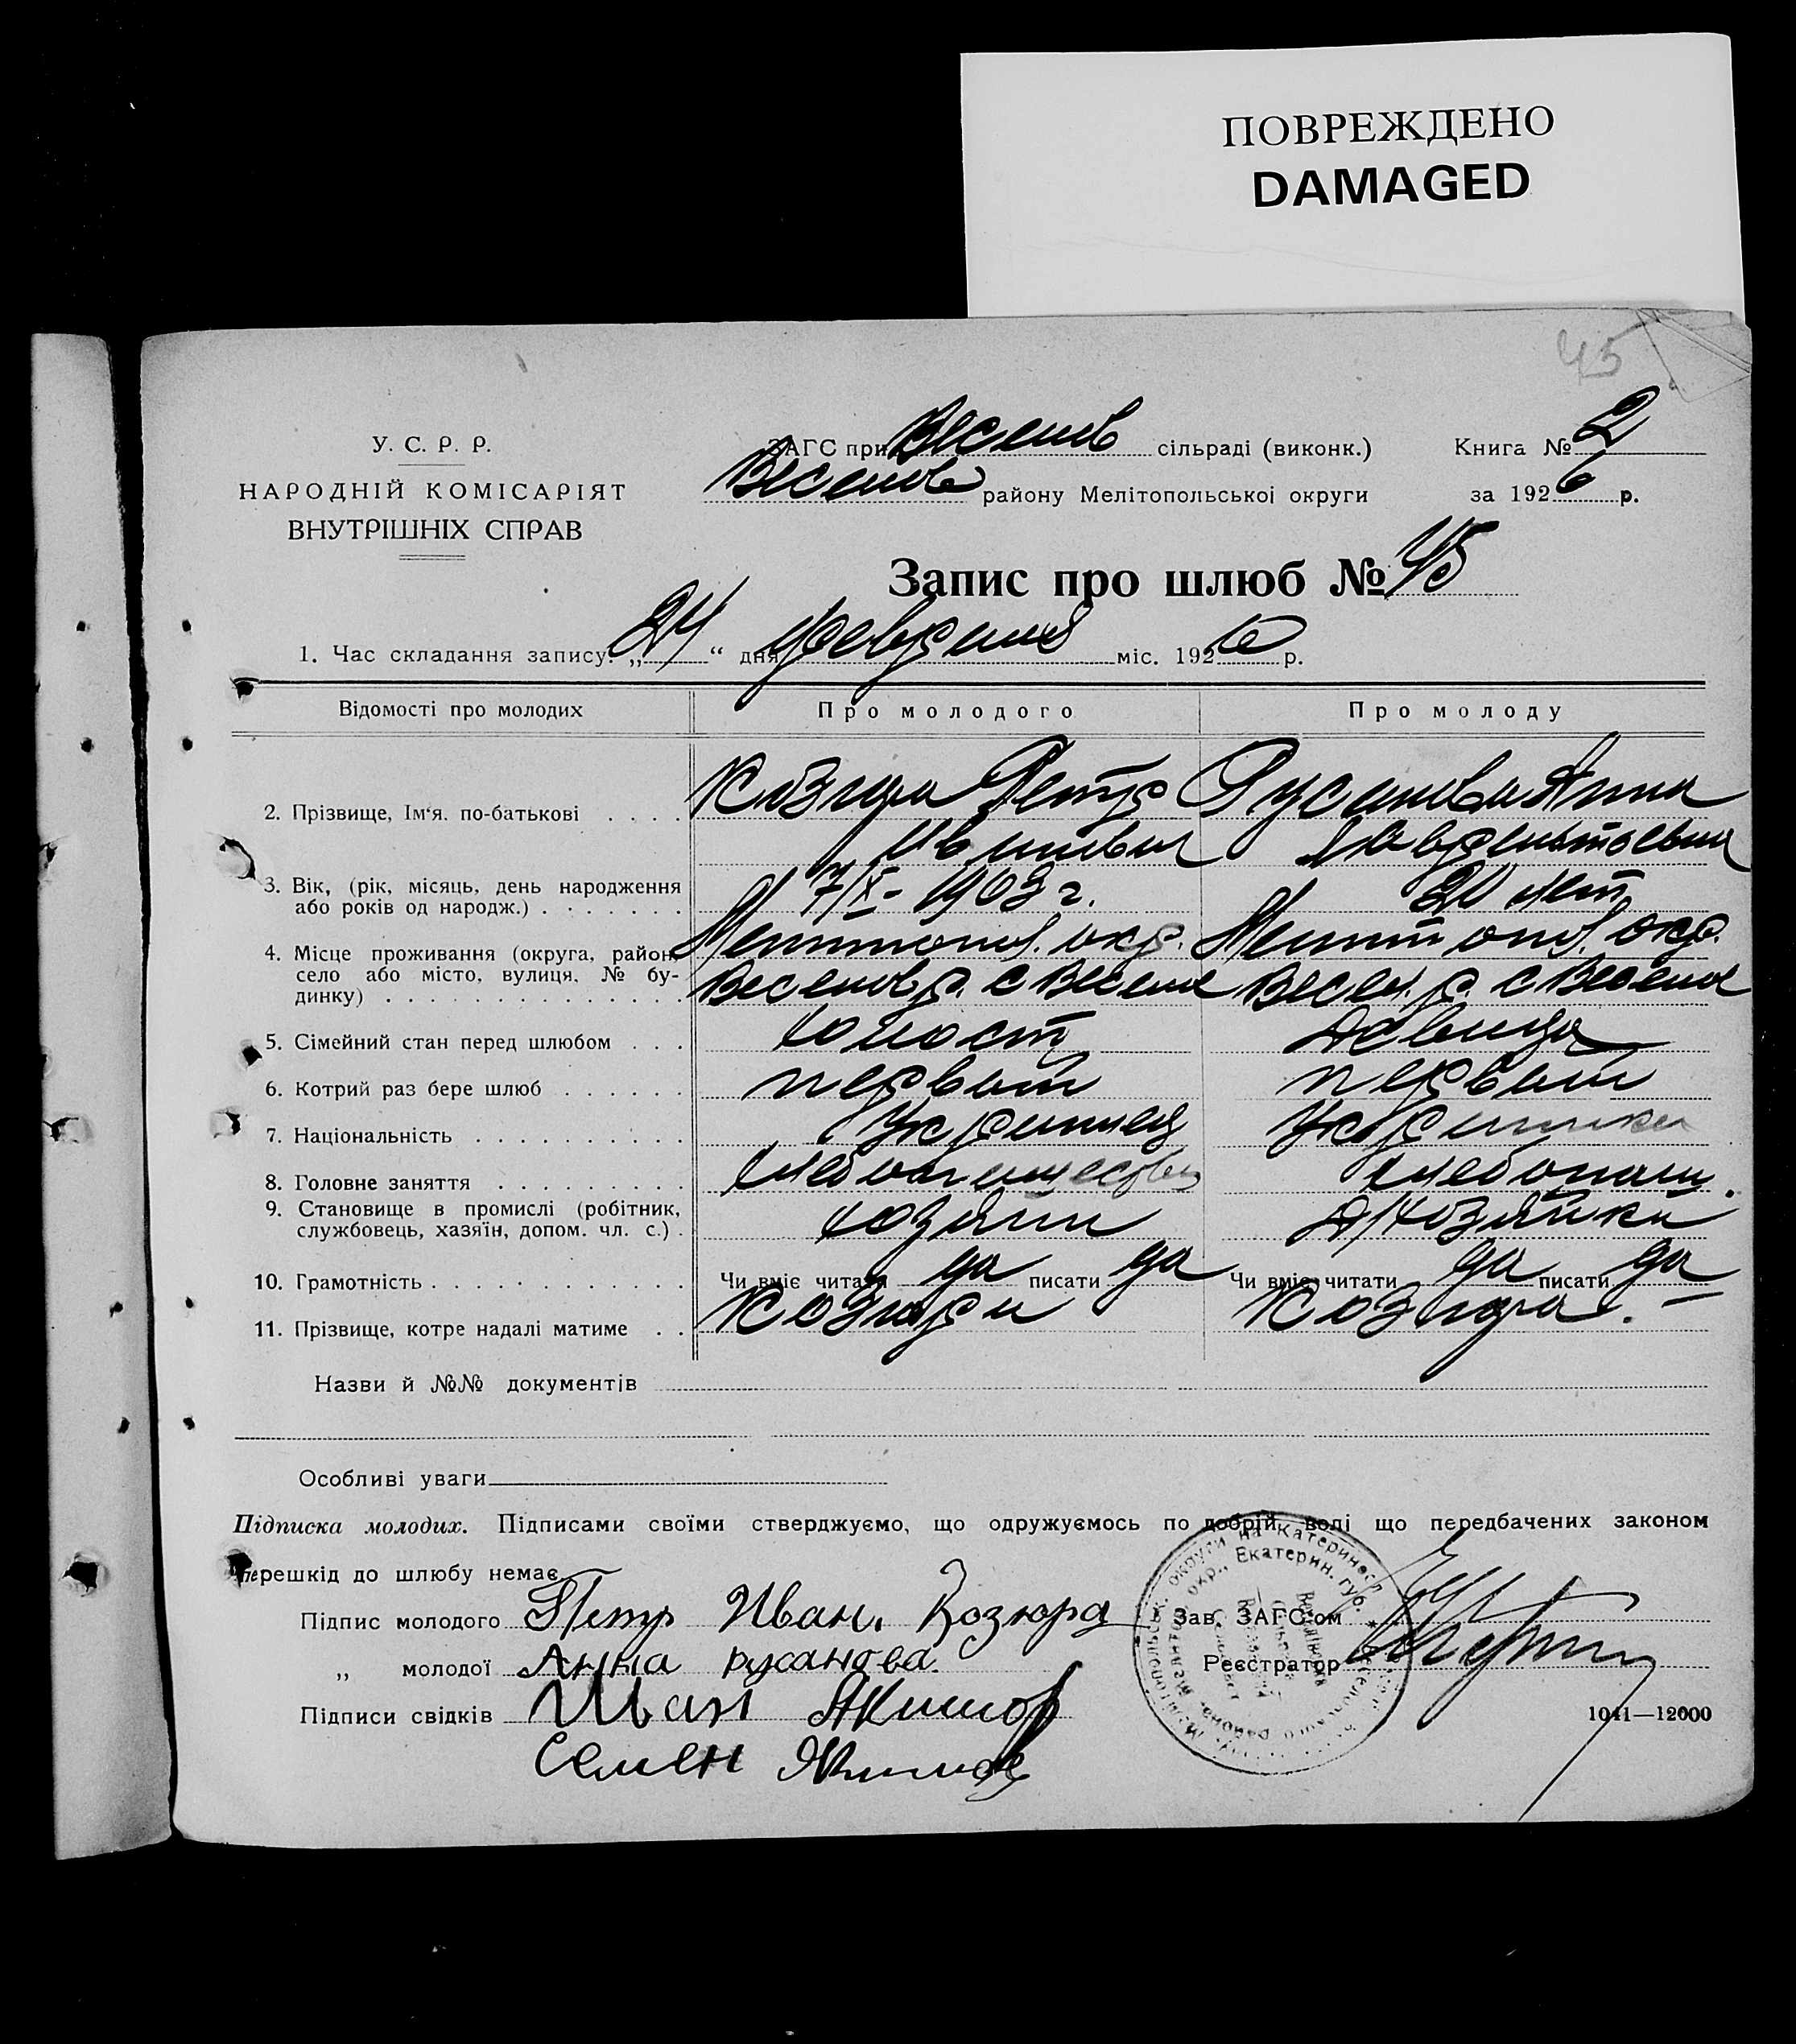 ПОВРЕЖДЕНО
DAMAGED
45
У. С. Р. Р.
НАРОДНІЙ КОМІСАРІЯТ
ВНУТРІШНІХ СПРАВ
ЗАГС при Веселов сільраді (виконк.) Книга № 2
Веселов району Мелітопольської округи за 1926 р.
Запис про шлюб № 45
1. Час складання запису: „24“ дня февраля міс. 1926 р.
Відомості про молодих Про молодого Про молоду
2. Прізвище, Ім‘я. по-батькові . . . . Козюра Петр Русанова Анна
Иванович Лаврентьевна
3. Вік, (рік, місяць, день народження
або років од народж.) . . . . . . . 7/X - 1903 г. 20 лет
4. Місце проживання (округа, район, Мелитопол. окр. Мелитопол. окр.
село або місто, вулиця, № бу-
динку) . . . . . . . . . . . . . . Веселов р. с Веселое Весел. р. с Веселое
5. Сімейний стан перед шлюбом . . . холост девица
6. Котрий раз бере шлюб . . . . . . первый первый
7. Національність . . . . . . . . . . Украинец Украинка
8. Головне заняття . . . . . . . . . хлебопашество хлебопаш.
9. Становище в промислі (робітник,
службовець, хазяїн, допом. чл. с.) . хозяин д/хозяйка
10. Грамотність . . . . . . . . . . . . Чи вміє читати да писати да Чи вміє читати да писати да
11. Прізвище, котре надалі матиме . . Козюра Козюра. —
Назви й №№ документів
Особливі уваги
Підписка молодих. Підписами своїми стверджуємо, що одружуємось по добрій волі що передбачених законом
перешкід до шлюбу немає
Підпис молодого Петр Иван. Козюра Зав. ЗАГС‘ом
„ молодої Анна русанова Реєстратор
Підписи свідків Иван Якимов 1041—12000
Семен Якимов